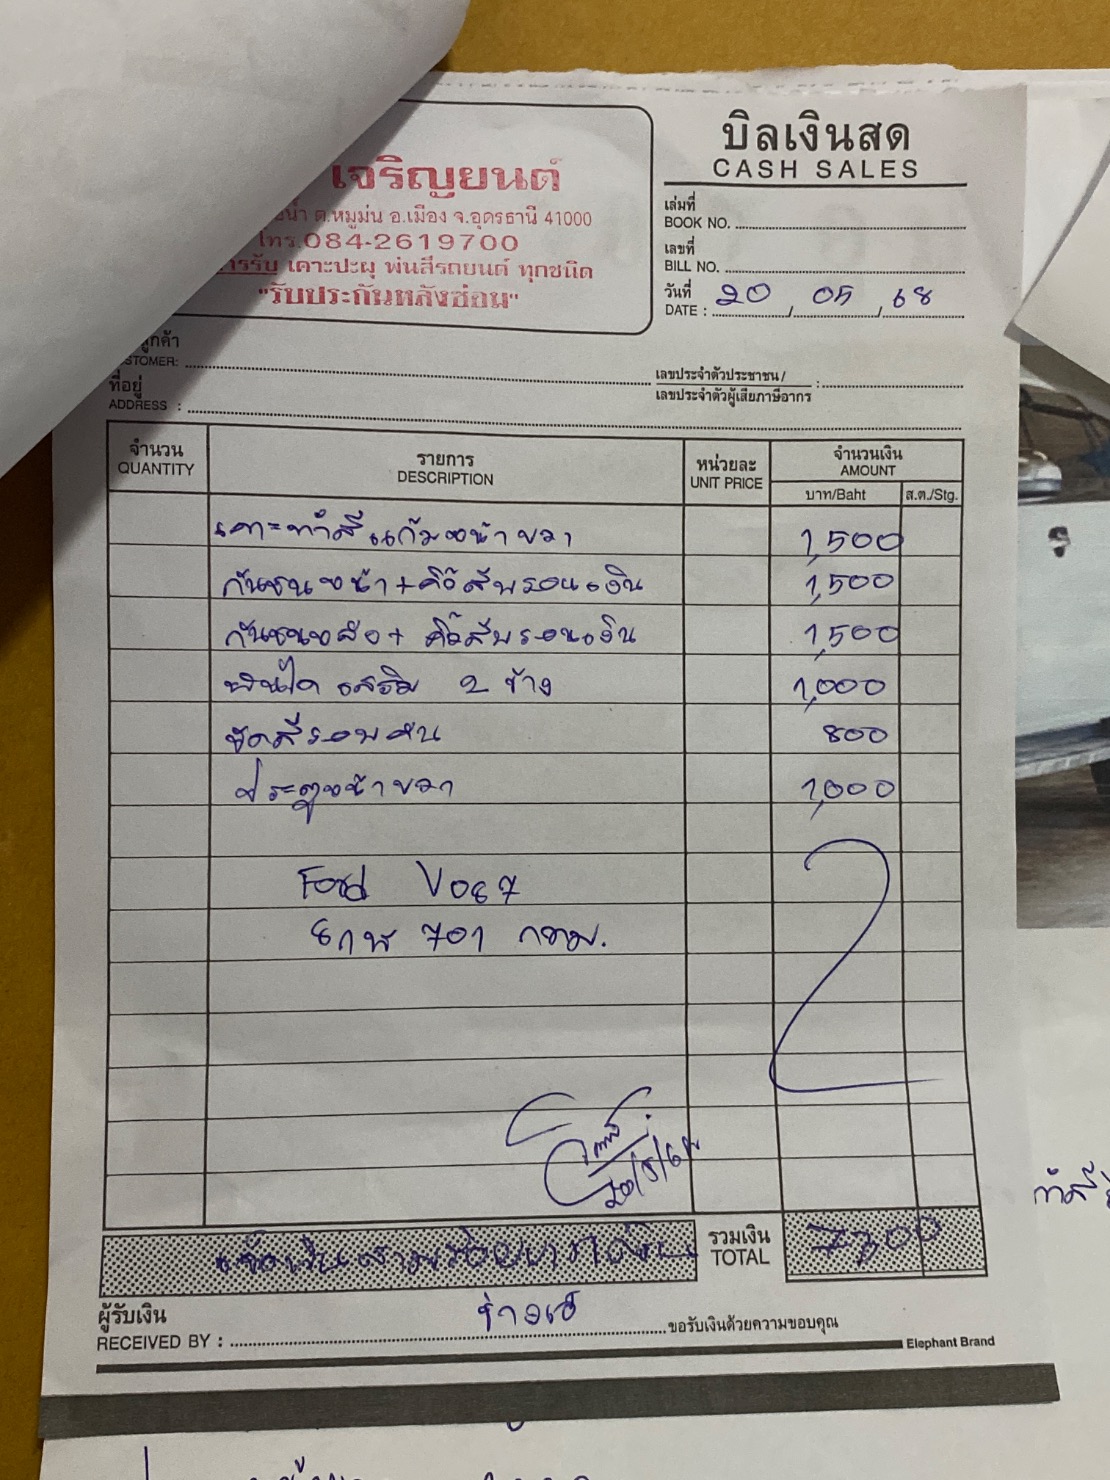 บิลเงินสด
CASH SALES
เจริญยนต์
ต.หมูม่น อ.เมือง จ.อุดรธานี 41000
โทร.084-2619700
การรับ เคาะปะผุ พ่นสีรถยนต์ ทุกชนิด
"รับประกันหลังซ่อม"
เล่มที่
BOOK NO.
เลขที่
BILL NO.
วันที่
DATE : 20 / 05 / 68
ลูกค้า
STOMER:
เลขประจำตัวประชาชน /
เลขประจำตัวผู้เสียภาษีอากร :
ที่อยู่
ADDRESS :
จำนวน รายการ หน่วยละ จำนวนเงิน
QUANTITY DESCRIPTION UNIT PRICE AMOUNT
บาท/Baht ส.ต./Stg.
เคาะทำสีแก้มหน้าขวา 1,500
กันชนหน้า+คิ้วสีบรอนเงิน 1,500
กันชนหลัง+ คิ้วสีบรอนเงิน 1,500
บันได เสริม 2 ข้าง 1,000
ขัดสีรอบคัน 800
ประตูหน้าขวา 1,000
Ford V087
701 กทม.
20/5/68
เจ็ดพันสามร้อยบาทถ้วน
รวมเงิน
TOTAL 7,300
ผู้รับเงิน
RECEIVED BY : ช่างเอ๋ ขอรับเงินด้วยความขอบคุณ
Elephant Brand
ทำสี